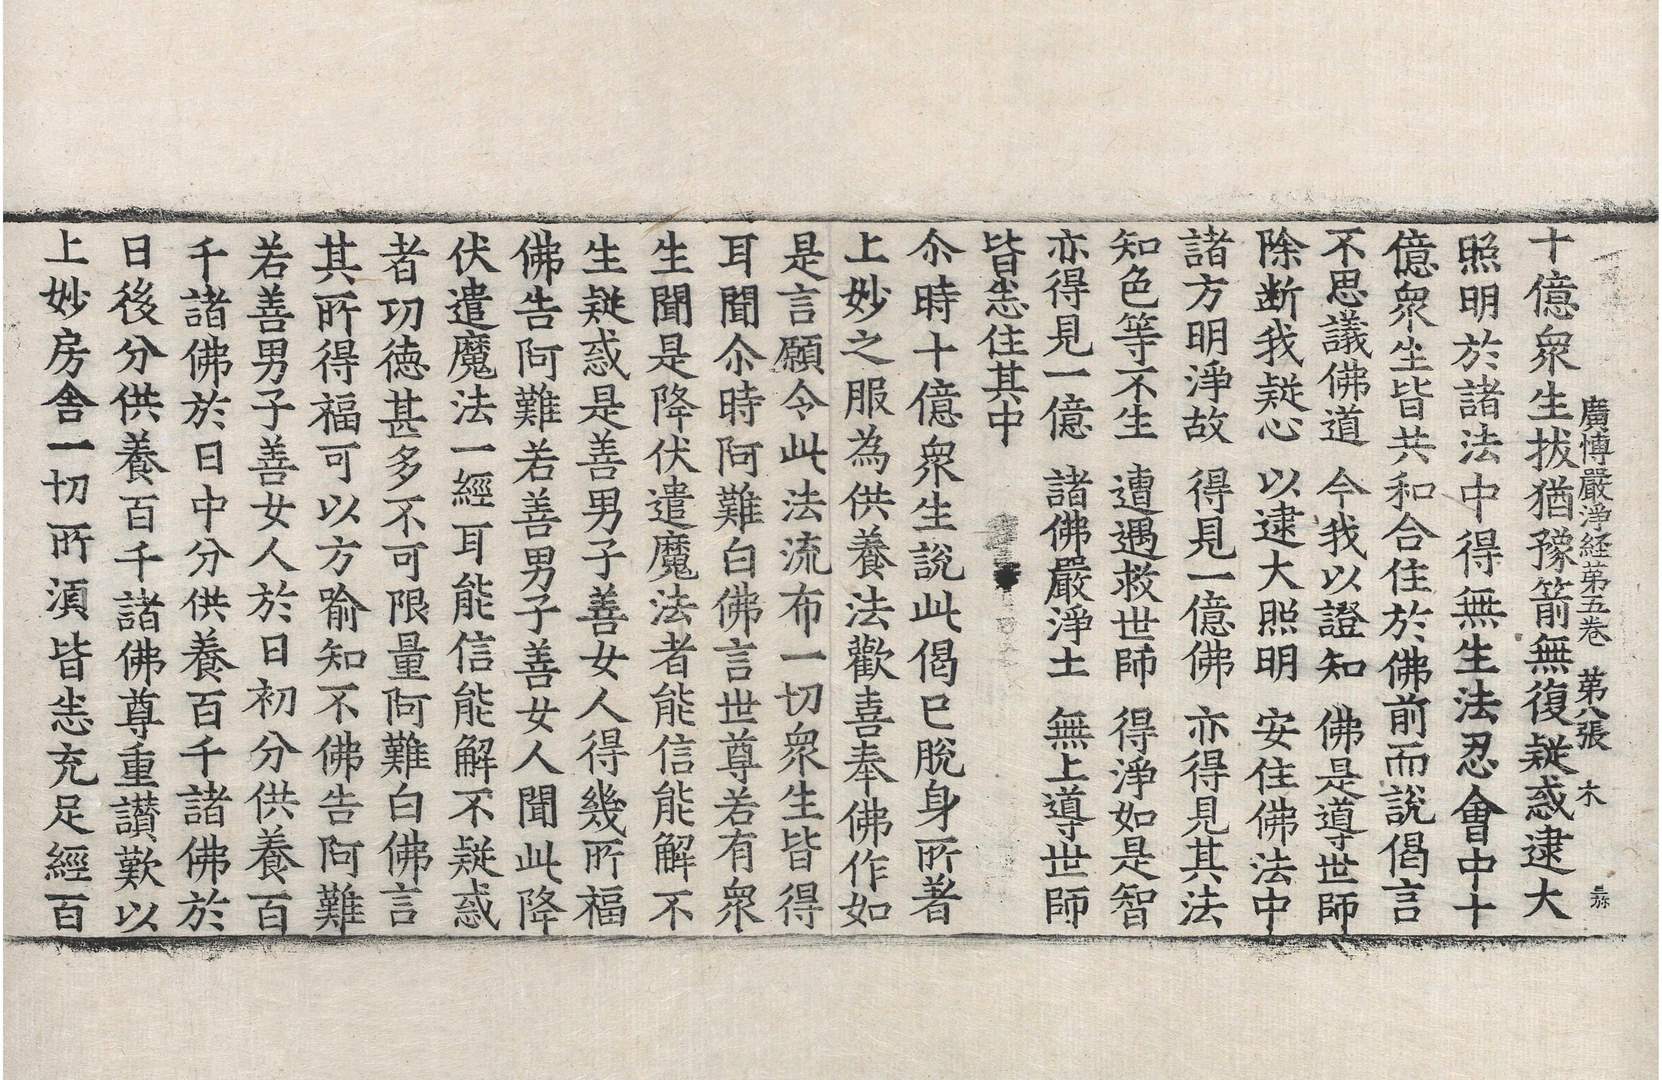 廣博嚴淨経第五卷　第八張　木
十億衆生拔猶豫箭無復疑惑逮大
照明於諸法中得無生法忍會中十
億衆生皆共和合住於佛前而說偈言
不思議佛道　今我以證知　佛是導世師
除断我疑心　以逮大照明　安住佛法中
諸方明淨故　得見一億佛　亦得見其法
知色等不生　遭遇救世師　得淨如是智
亦得見一億　諸佛嚴淨土　無上導世師
皆悉住其中
尒時十億衆生說此偈已脫身所著
上妙之服為供養法歡喜奉佛作如
是言願令此法流布一切衆生皆得
耳聞尒時阿難白佛言世尊若有衆
生聞是降伏遣魔法者能信能解不
生疑惑是善男子善女人得幾所福
佛告阿難若善男子善女人聞此降
伏遣魔法一經耳能信能解不疑惑
者功徳甚多不可限量阿難白佛言
其所得福可以方喻知不佛告阿難
若善男子善女人於日初分供養百
千諸佛於日中分供養百千諸佛於
日後分供養百千諸佛尊重讃歎以
上妙房舍一切所湏皆悉充足經百